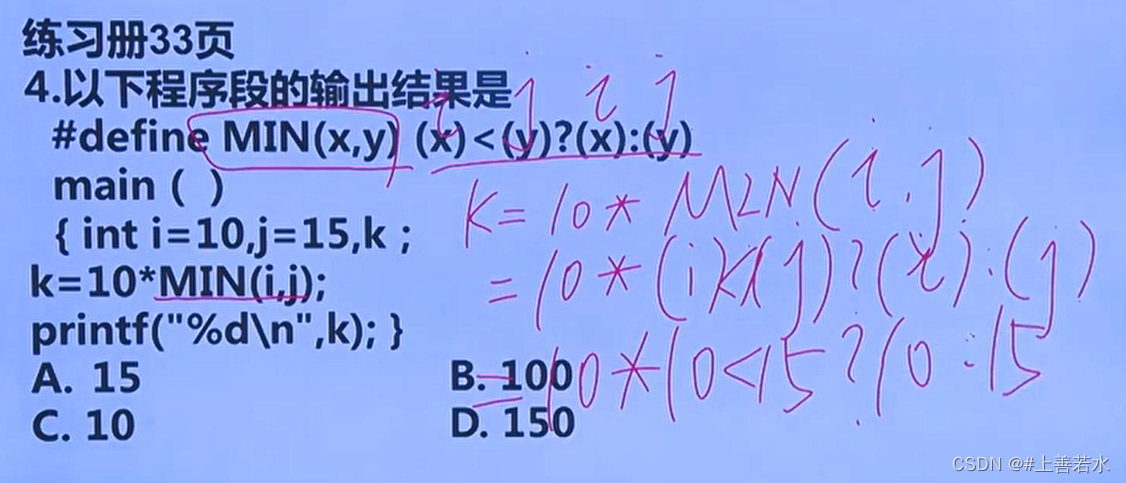 练习册33页
4.以下程序段的输出结果是
i j i j
#define MIN(x,y) (x)<(y)?(x):(y)
main ( )
{ int i=10,j=15,k ;
k=10*MIN(i,j);
printf("%d\n",k); }
A. 15 B. 100
C. 10 D. 150
K=10*MIN(i,j)
=10*(i)<(j)?(i):(j)
=10*10<15?10:15
CSDN @#上善若水